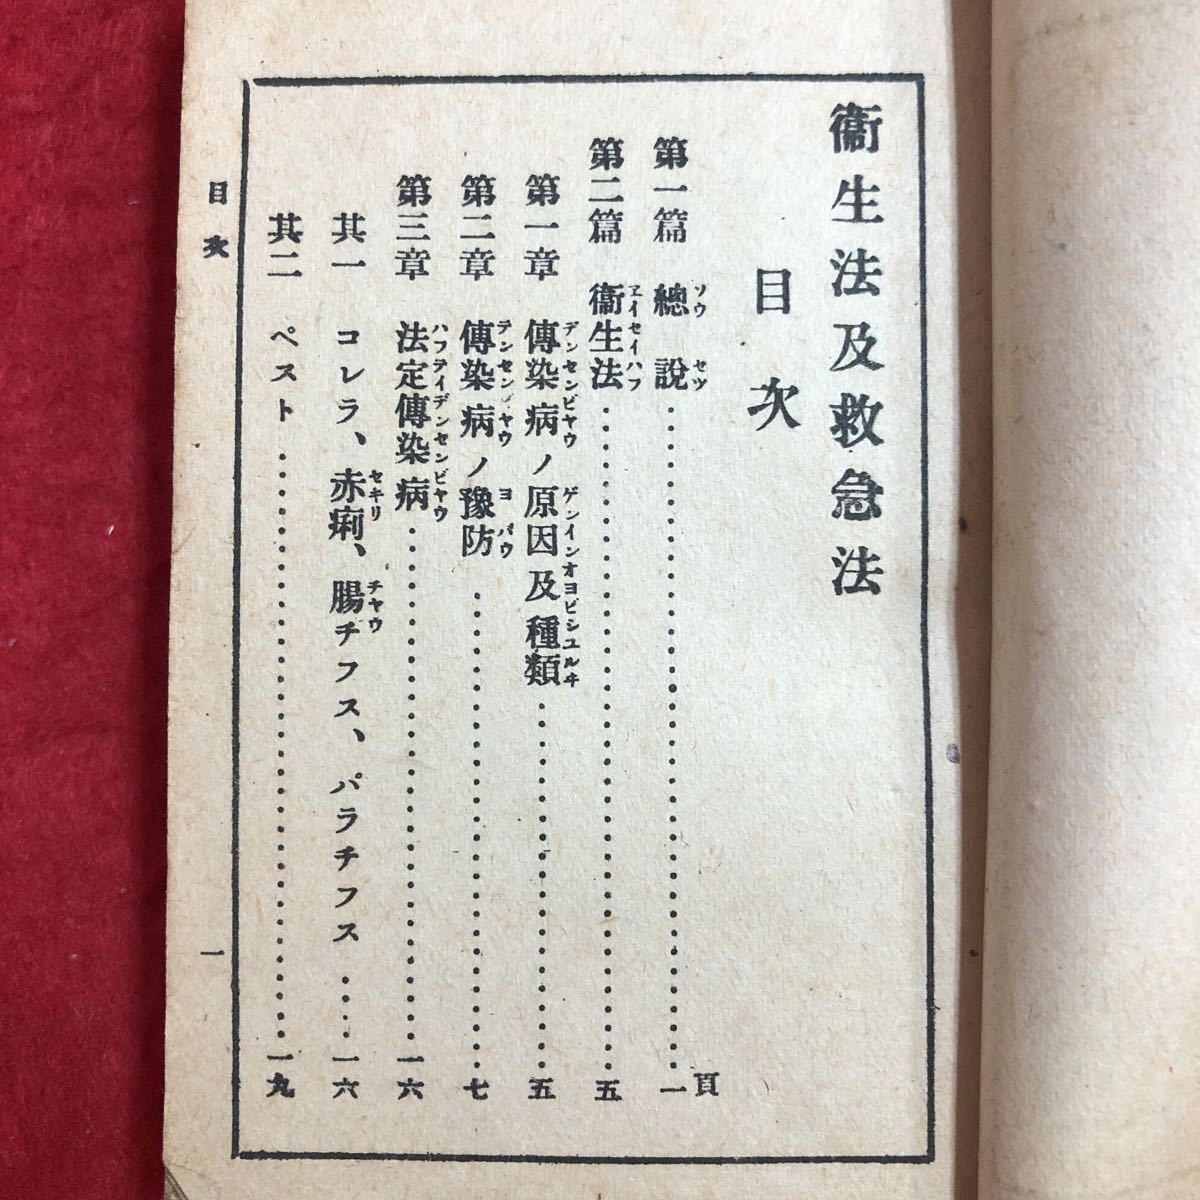 衞生法及救急法
目次
頁
第一篇 總說……一
ソウ セツ
第二篇 衞生法……五
ヱイセイハフ
第一章 傳染病ノ原因及種類……五
デンセンビヤウ ゲンインオヨビシユルヰ
第二章 傳染病ノ豫防……七
デンセンビヤウ ヨバウ
第三章 法定傳染病……一六
ハフテイデンセンビヤウ
其一 コレラ、赤痢、腸チフス、パラチフス……一六
セキリ チヤウ
其二 ペスト……一九
目次
一